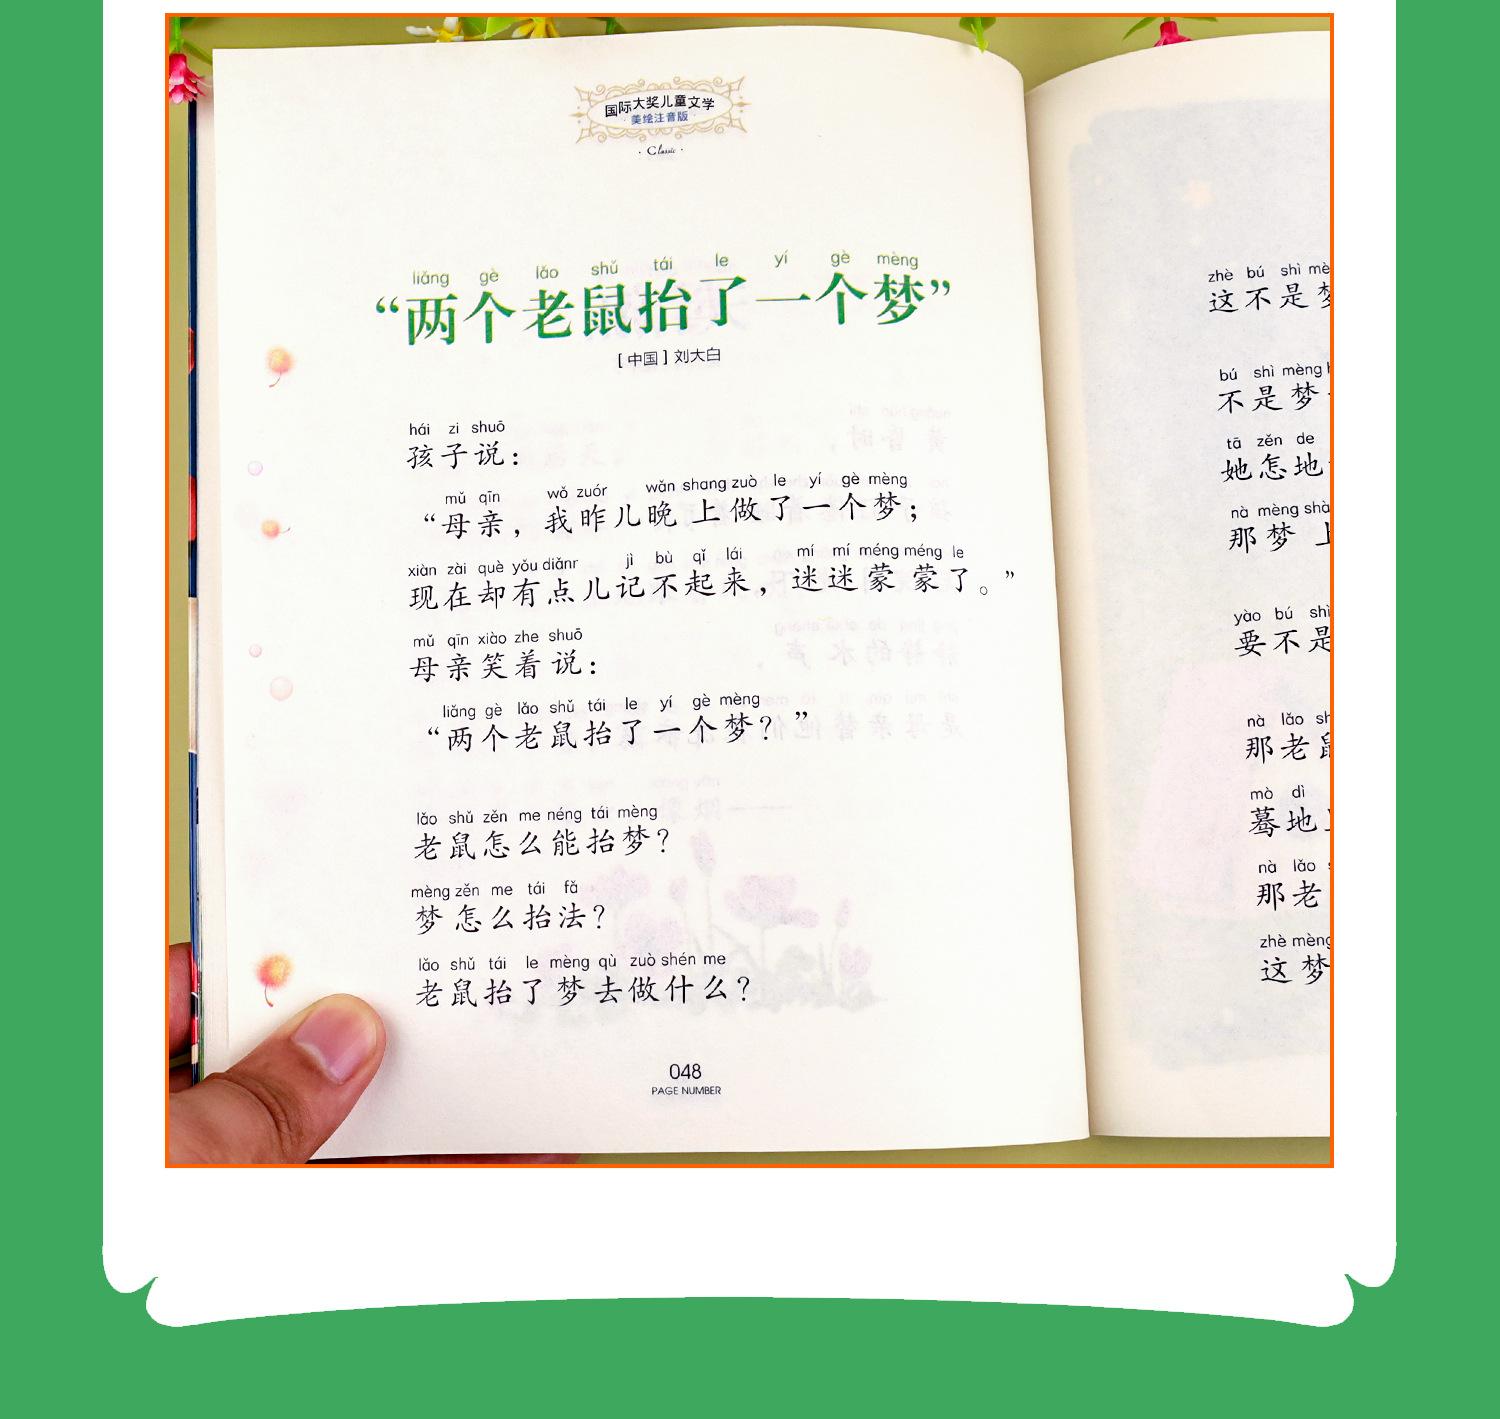 国际大奖儿童文学
美绘注音版
· Classic ·
liǎng gè lǎo shǔ tái le yí gè mèng
“两个老鼠抬了一个梦”
[中国]刘大白
hái zi shuō
孩子说：
mǔ qīn wǒ zuór wǎn shang zuò le yí gè mèng
“母亲，我昨儿晚上做了一个梦；
xiàn zài què yǒu diǎnr jì bù qǐ lái mí mí méng méng le
现在却有点儿记不起来，迷迷蒙蒙了。”
mǔ qīn xiào zhe shuō
母亲笑着说：
liǎng gè lǎo shǔ tái le yí gè mèng
“两个老鼠抬了一个梦？”
lǎo shǔ zěn me néng tái mèng
老鼠怎么能抬梦？
mèng zěn me tái fǎ
梦怎么抬法？
lǎo shǔ tái le mèng qù zuò shén me
老鼠抬了梦去做什么？
048
PAGE NUMBER
zhè bú shì mè
这不是梦
bú shì mèng
不是梦
tā zěn de
她怎地
nà mèng shà
那梦上
yào bú shì
要不是
nà lǎo sh
那老鼠
mò dì
蓦地
nà lǎo
那老
zhè mèng
这梦